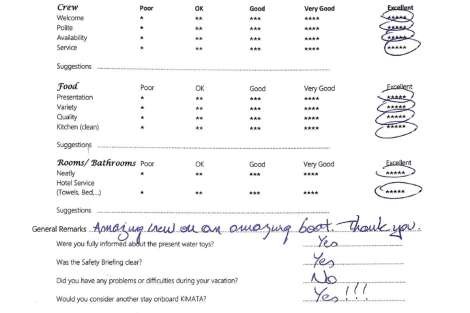 Crew Poor OK Good Very Good Excellent
Welcome * ** *** **** *****
Polite * ** *** **** *****
Availability * ** *** **** *****
Service * ** *** **** *****
Suggestions
Food Poor OK Good Very Good Excellent
Presentation * ** *** **** *****
Variety * ** *** **** *****
Quality * ** *** **** *****
Kitchen (clean) * ** *** **** *****
Suggestions
Rooms/ Bathrooms Poor OK Good Very Good Excellent
Neetly * ** *** **** *****
Hotel Service
(Towels, Bed,...) * ** *** **** *****
Suggestions
General Remarks Amazing crew on an amazing boat. Thank you.
Were you fully informed about the present water toys? Yes
Was the Safety Briefing clear? Yes
Did you have any problems or difficulties during your vacation? No
Would you consider another stay onboard KIMATA? Yes!!!